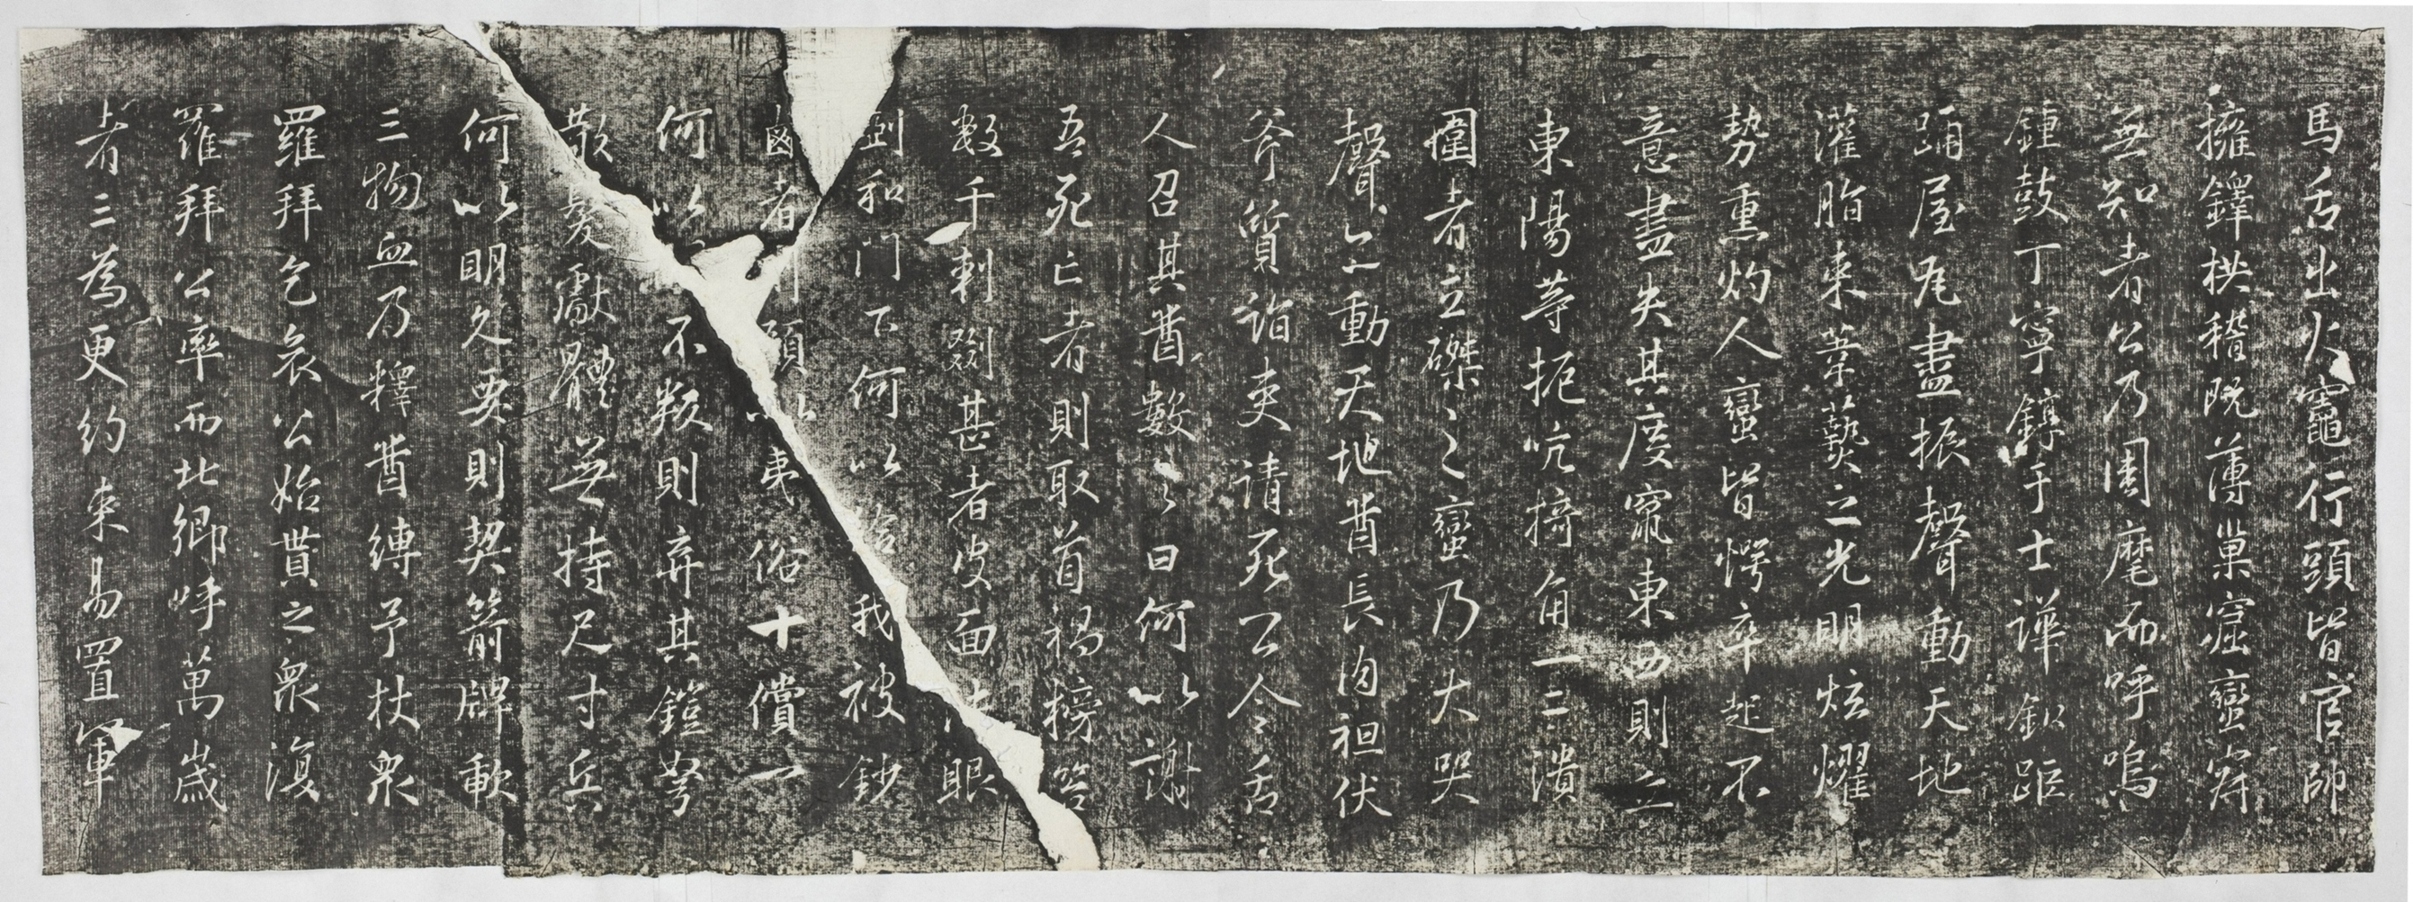 馬舌出火竈行頭皆官帥
擁鐸拱稽既薄巢窟蠻穽
無知者公乃周麾而呼鳴
鍾鼓丁寧錞于士譁釦距
踊屋瓦盡振聲動天地
灌脂束葦爇之光明炫燿
勢熏灼人蠻皆愕卒起不
意盡失其度竄東西則立
東陽等扼吭掎角一二潰
圍者立磔之蠻乃大哭
聲亦動天地酋長肉袒伏
斧質詣吏請死公令舌
人召其酋數之曰何以謝
吾死亡者則取首禍榜笞
數千刺剟甚者皮面 眼
到和門下何以 我被鈔
鹵者 頭以夷俗十償一
何以不叛則弃其鎧弩
散髮獻體無持尺寸兵
何以明久要則契箭牌歃
三物血乃釋酋縛予杖衆
羅拜乞哀公始貰之衆復
羅拜公率而北鄉呼萬歲
者三為更約束易置軍